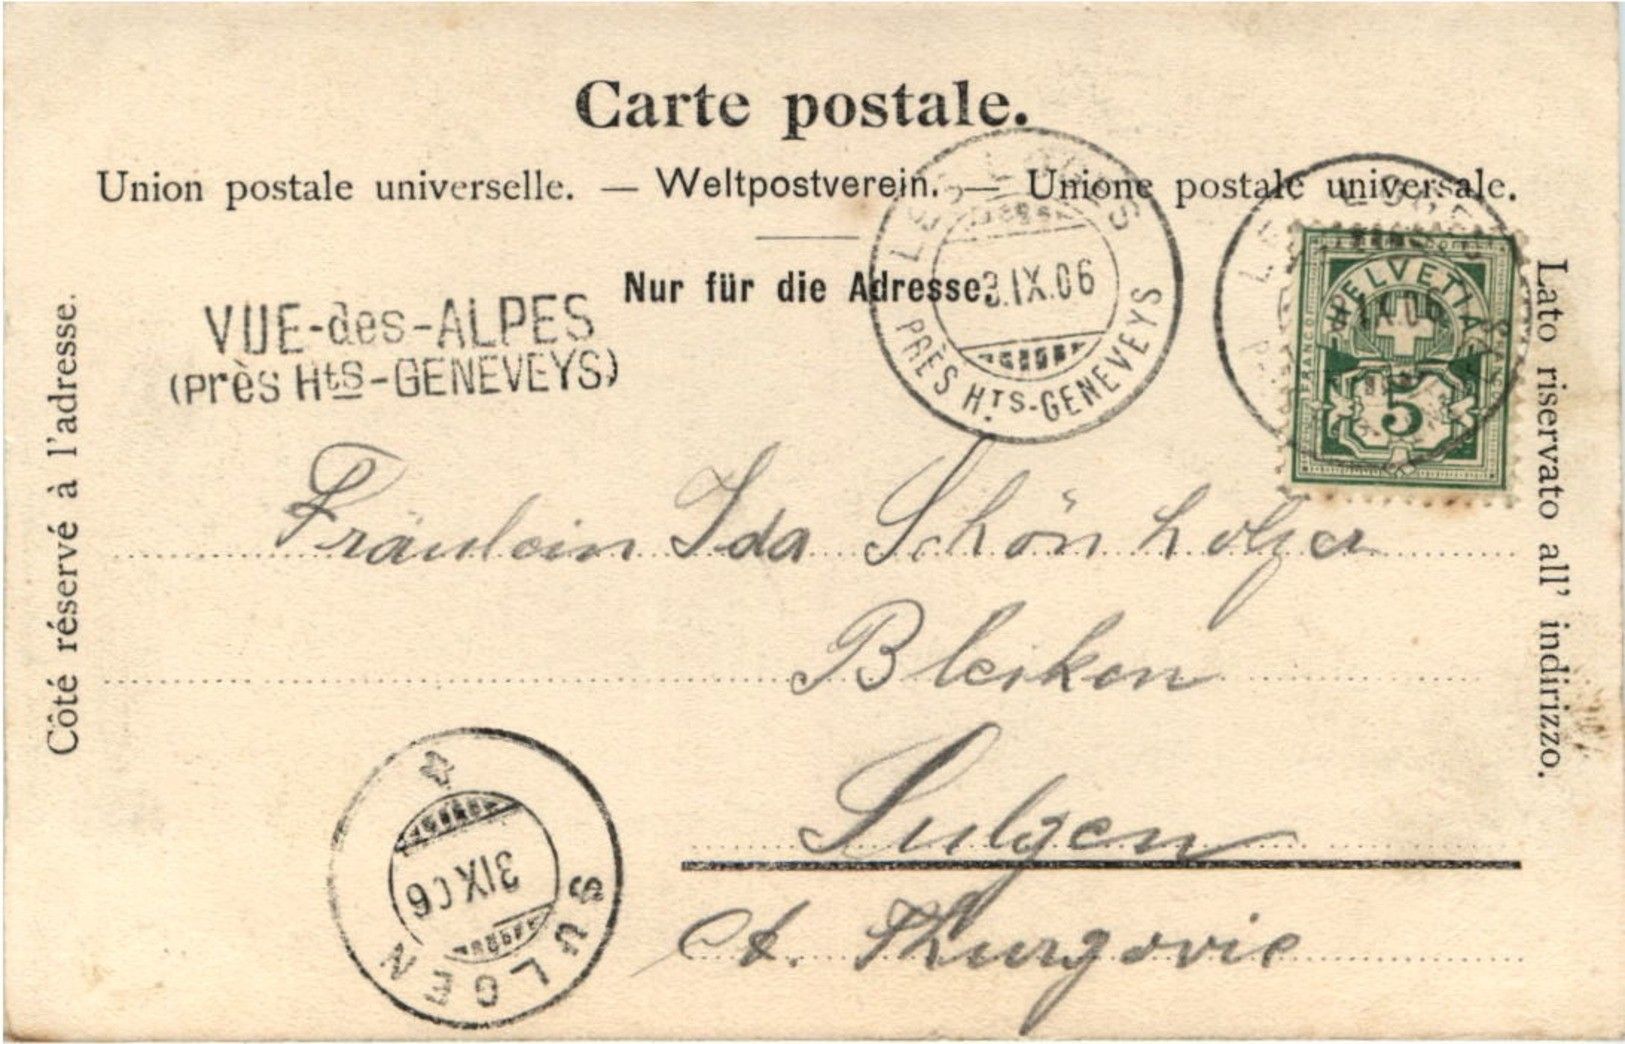 Carte postale.
Union postale universelle. — Weltpostverein. — Unione postale universale.
Nur für die Adresse.
Côté réservé à l'adresse.
Lato riservato all' indirizzo.
VUE-des-ALPES
(Près Hts-GENEVEYS)
LES LOGES
3.IX.06
PRÈS HTS-GENEVEYS
HELVETIA
FRANCO
5
Fräulein Ida Schönholzer
Bleiken
Sulgen
Ct. Thurgovie
SULGEN
3 IX 06